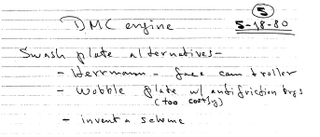 5
DMC engine 5-18-80
Swash plate alternatives-
- Herrmann - face cam & roller
- Wobble plate w/ antifriction brgs
(too costly)
- invent a scheme